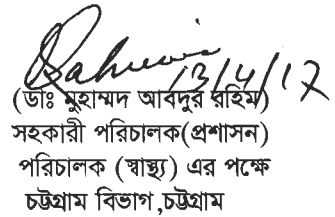 Rahim
13/4/17
(ডাঃ মুহাম্মদ আবদুর রহিম)
সহকারী পরিচালক(প্রশাসন)
পরিচালক (স্বাস্থ্য) এর পক্ষে
চট্টগ্রাম বিভাগ ,চট্টগ্রাম